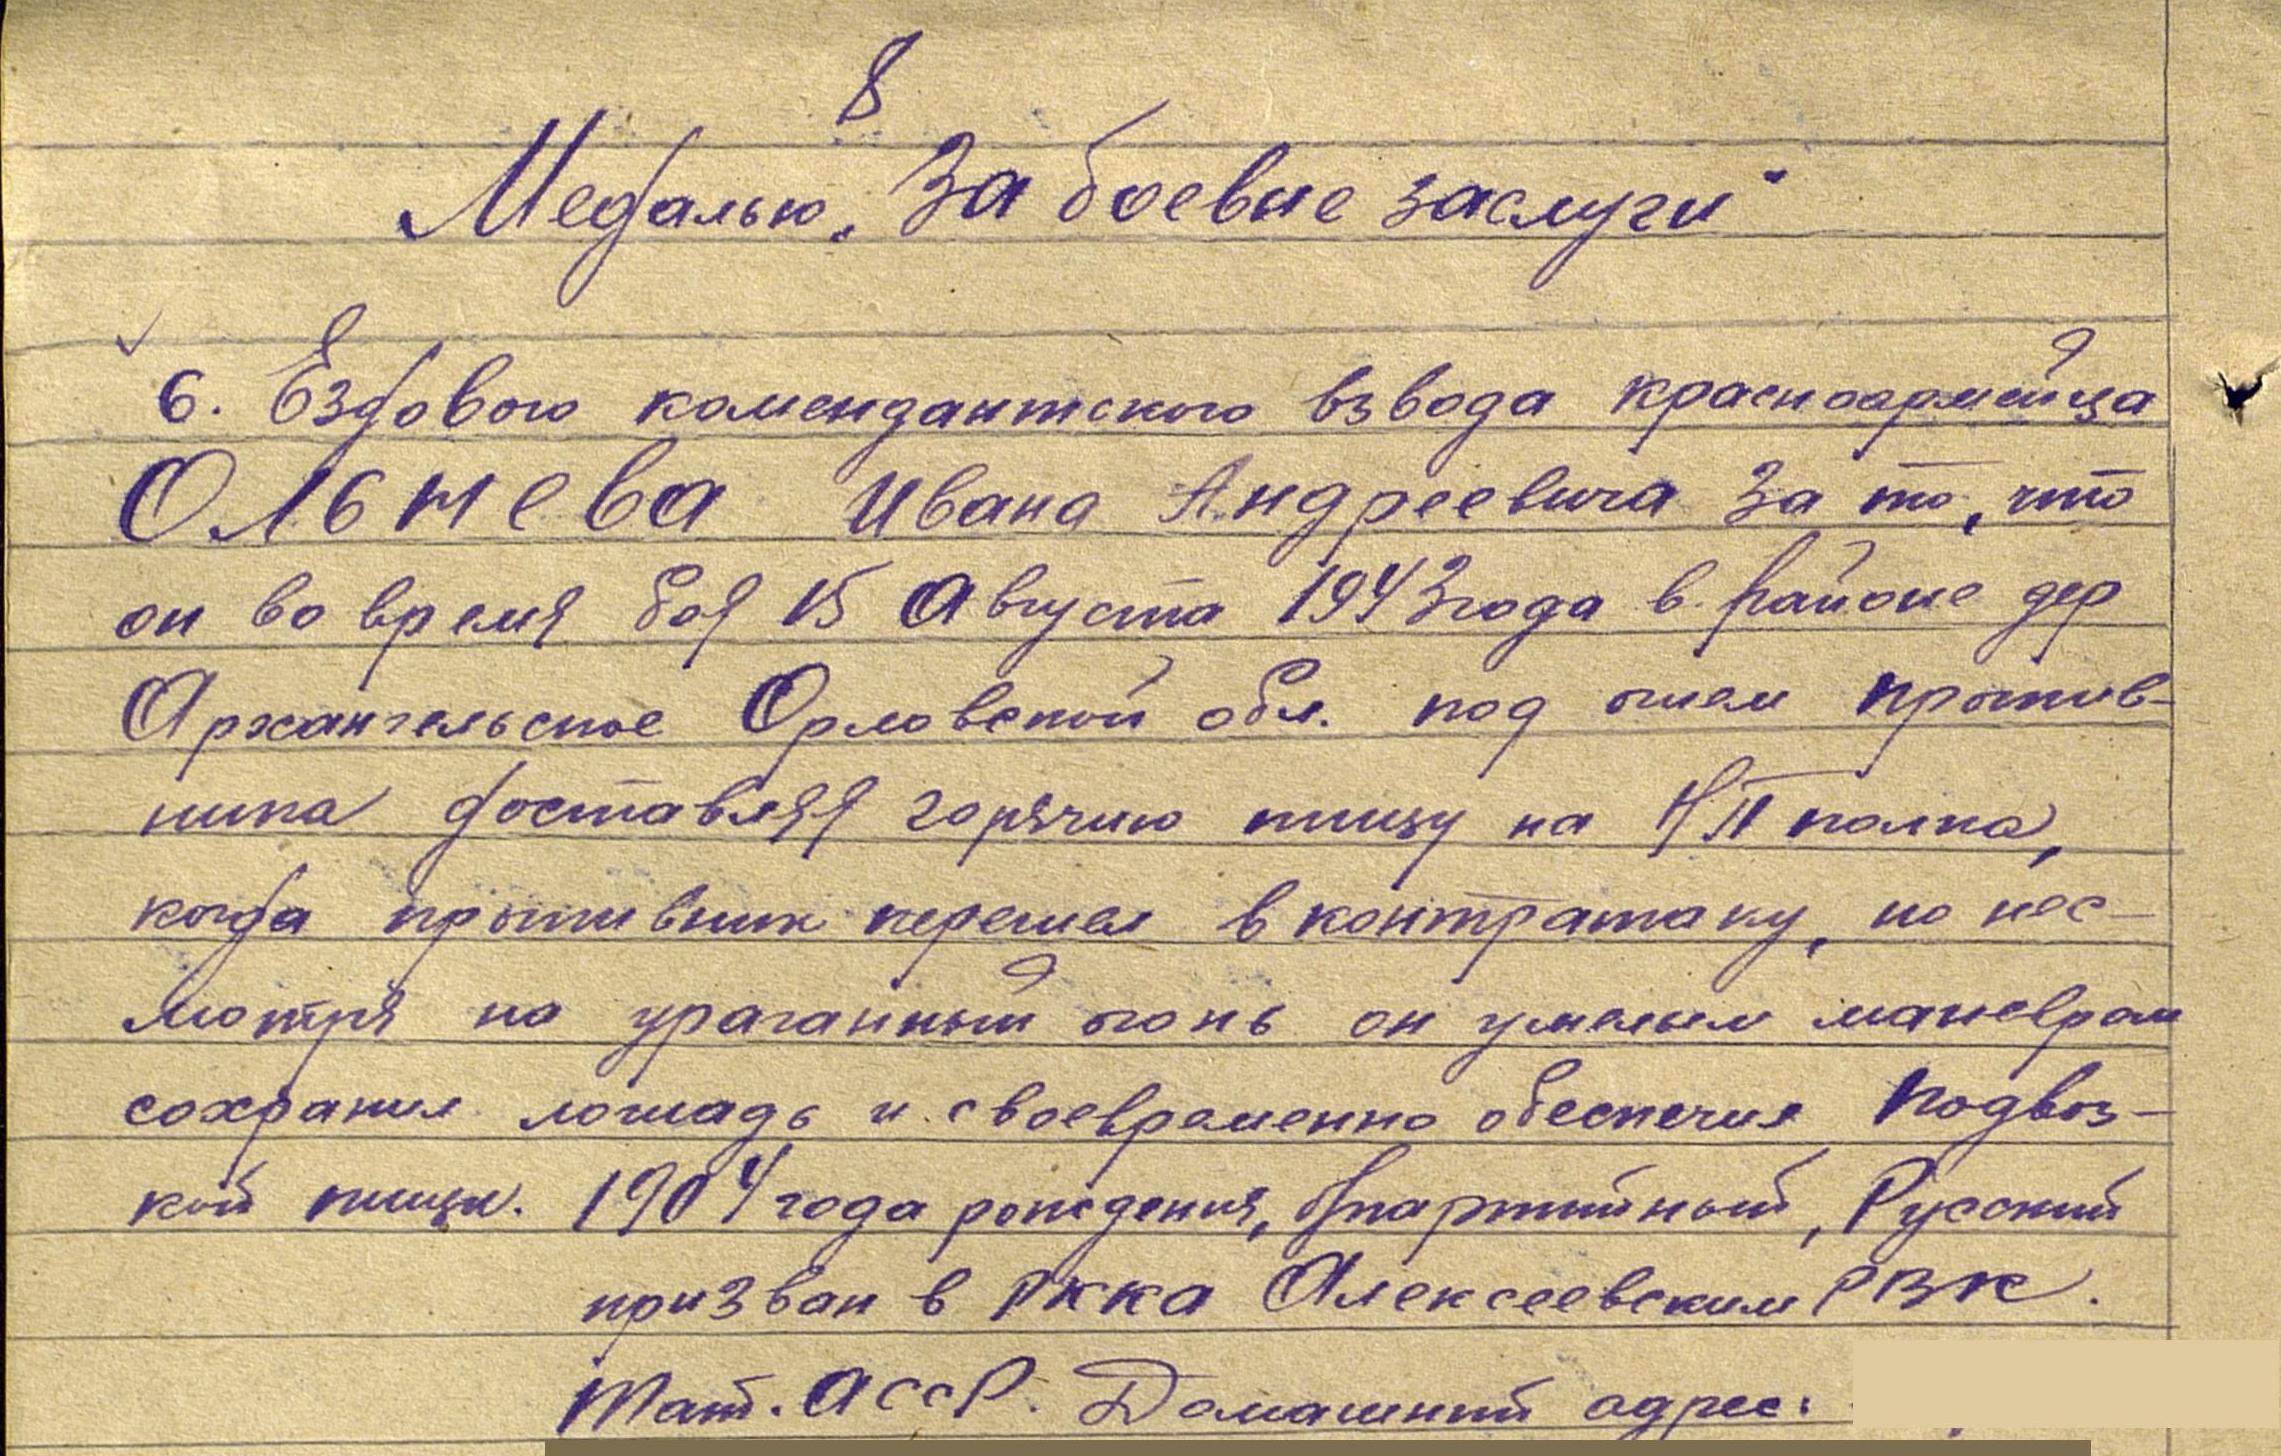 8
Медалью „За боевые заслуги"
6. Ездового комендантского взвода красноармейца
Ольнева Ивана Андреевича за то, что
он во время боя 15 Августа 1943 года в районе дер
Архангельское Орловской обл. под огнем против-
ника доставляя горячию пищу на НП полка,
когда противник перешел в контратаку, но нес-
мотря на ураганный огонь он умелым маневром
сохранил лошадь и своевременно обеспечил подвоз-
кой пищи. 1904 года рождения, б/партийный, Русский
призван в РККА Алексеевским РВК.
Тат. АССР. Домашний адрес: